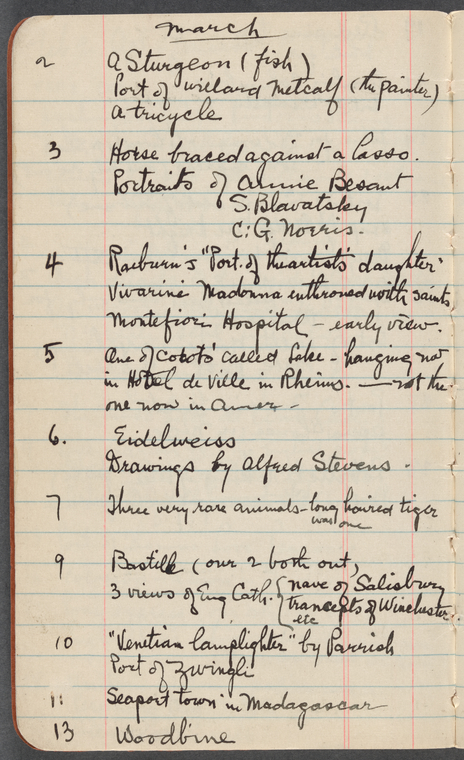 March
2 A Sturgeon (fish)
Port of Willard Metcalf (the painter)
A tricycle
3 Horse braced against a lasso.
Portraits of Annie Besant
S. Blavatsky
C. G. Norris.
4 Raeburn's "Port. of the artist's daughter"
Vivarini Madonna enthroned with saints
Montefiori Hospital - early view.
5 One of Corots called Lake - hanging now
in Hotel de Ville in Rheims. — not the
one now in Amer -
6. Eidelweiss
Drawings by Alfred Stevens.
7 Three very rare animals - long haired tiger
was one
9 Bastille (our 2 both out,
3 views of Eng Cath. { nave of Salisbury
trancepts of Winchester
etc
10 "Venetian lamplighter" by Parrish
Port of Zwingli
11 Seaport town in Madagascar
13 Woodbine